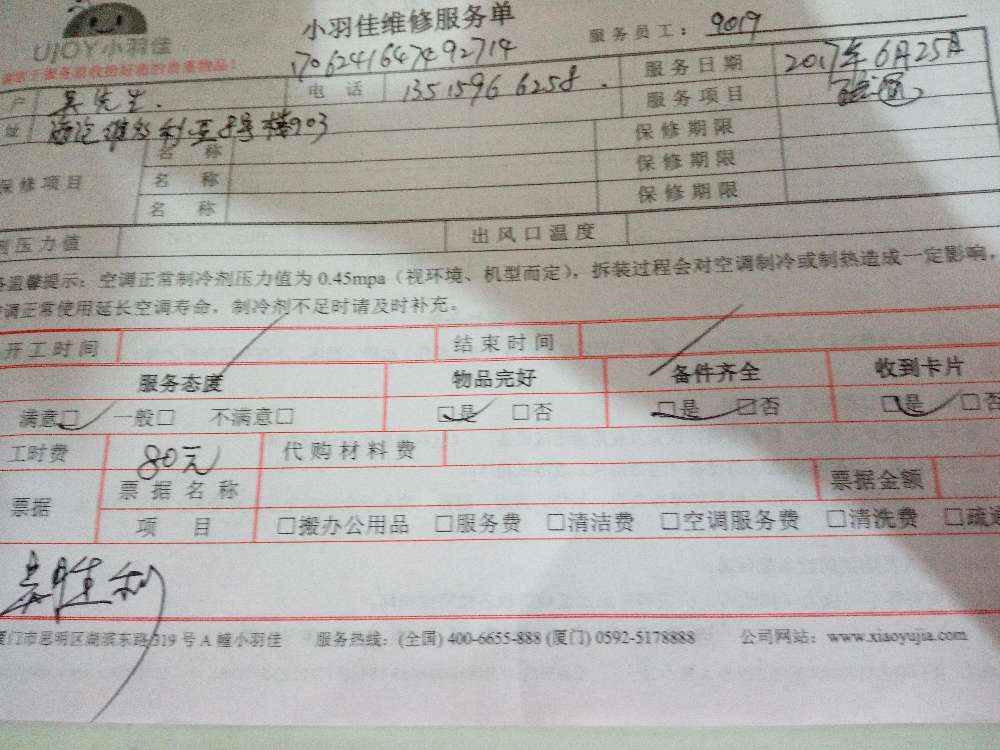 小羽佳维修服务单
UJOY小羽佳
服务员工：9019
17062416474 92714
户 吴先生. 电话 13515966258. 服务日期 2017年6月25日
服务项目
址 8号楼903 保修期限
保修项目 名称 保修期限
名称 保修期限
名称
剂压力值 出风口温度
温馨提示：空调正常制冷剂压力值为0.45mpa（视环境、机型而定），拆装过程会对空调制冷或制热造成一定影响，
调正常使用延长空调寿命，制冷剂不足时请及时补充。
开工时间 结束时间
服务态度 物品完好 备件齐全 收到卡片
满意□ 一般□ 不满意□ □是 □否 □是 □否 □是 □否
工时费 80元 代购材料费
票据 票据名称 票据金额
项目 □搬办公用品 □服务费 □清洁费 □空调服务费 □清洗费 □疏通
吴胜利
厦门市思明区湖滨东路319号A幢小羽佳 服务热线：(全国) 400-6655-888 (厦门) 0592-5178888 公司网站：www.xiaoyujia.com